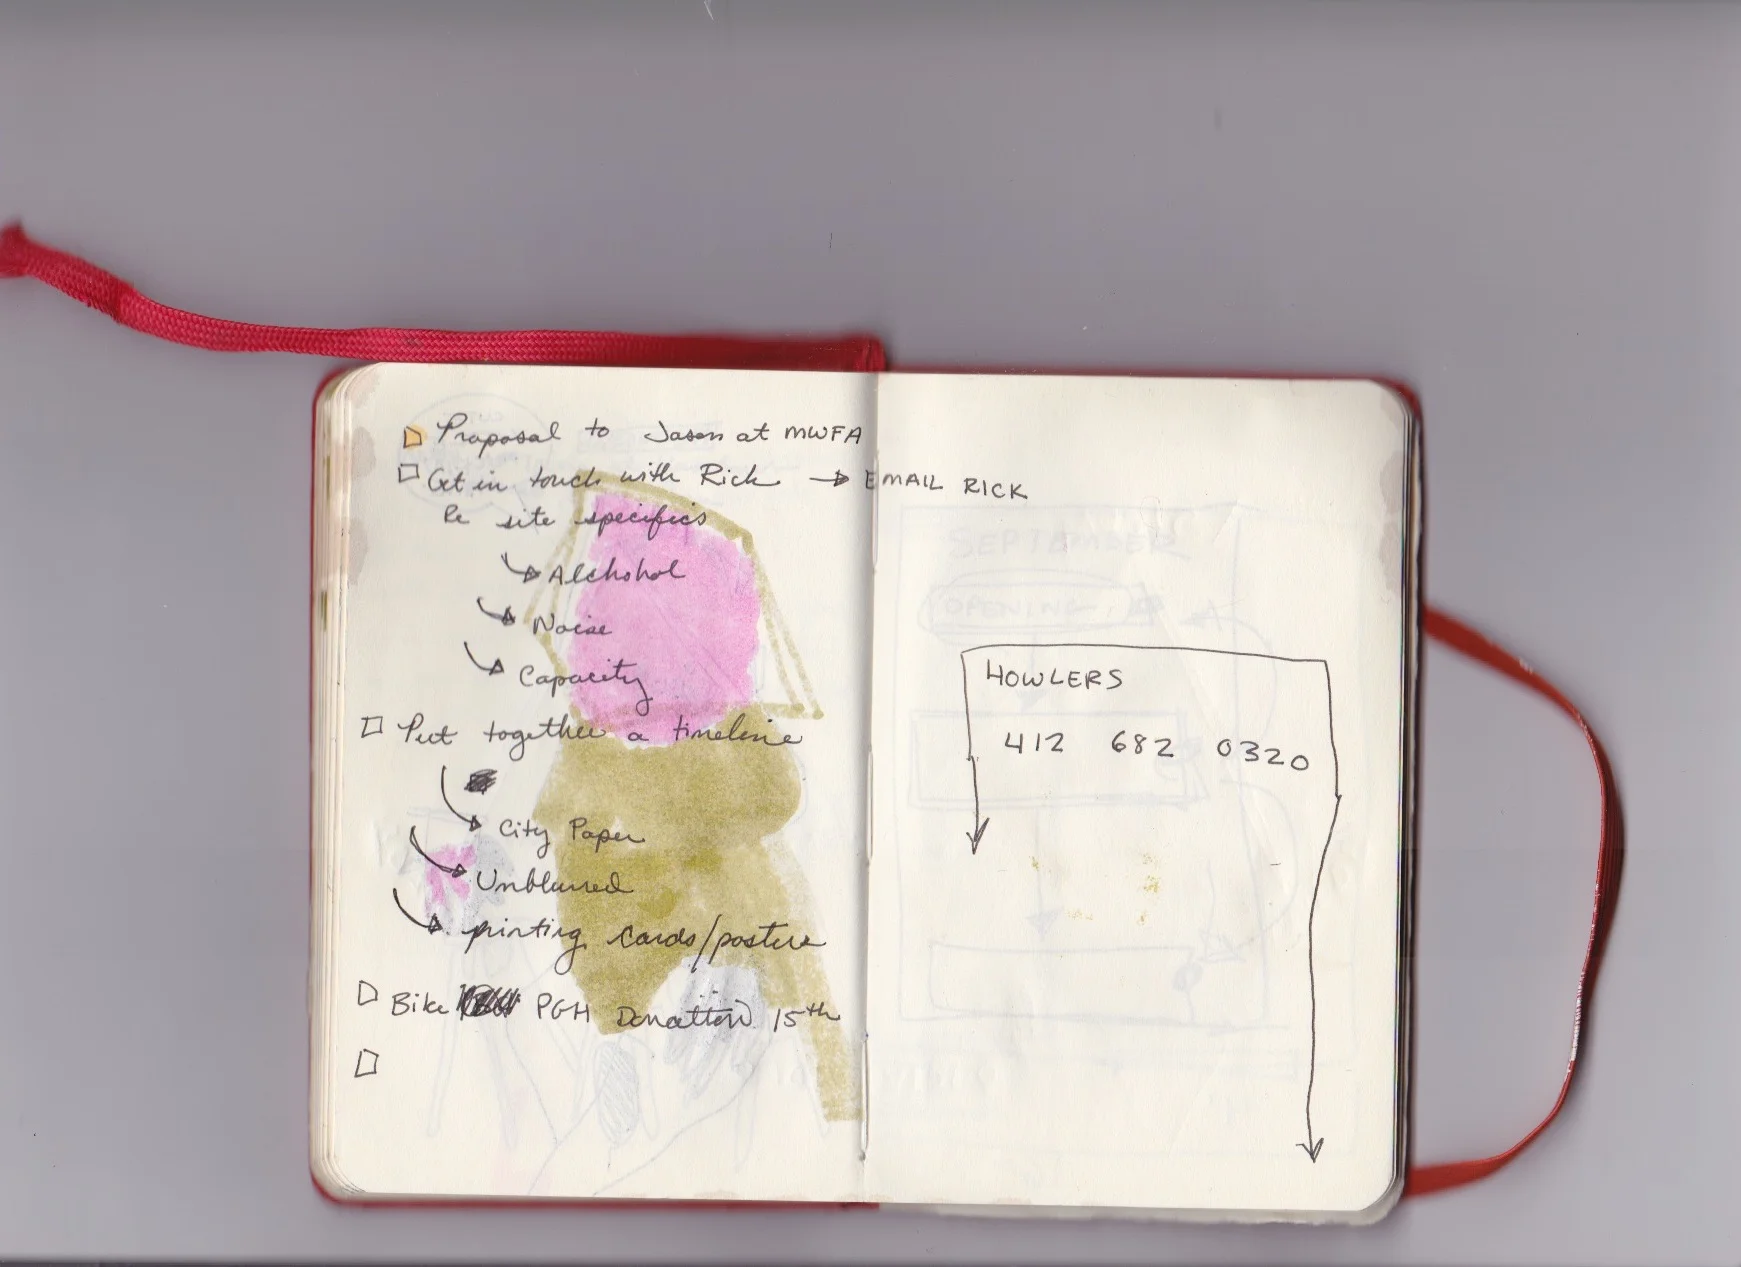 Proposal to Jason at MWFA
Get in touch with Rick → EMAIL RICK
Re site specifics
Alchohol
Noise
Capacity
Put together a timeline
City Paper
Unblurred
printing cards/posters
Bike PGH Donation 15th
SEPTEMBER
OPENING
HOWLERS
412 682 0320